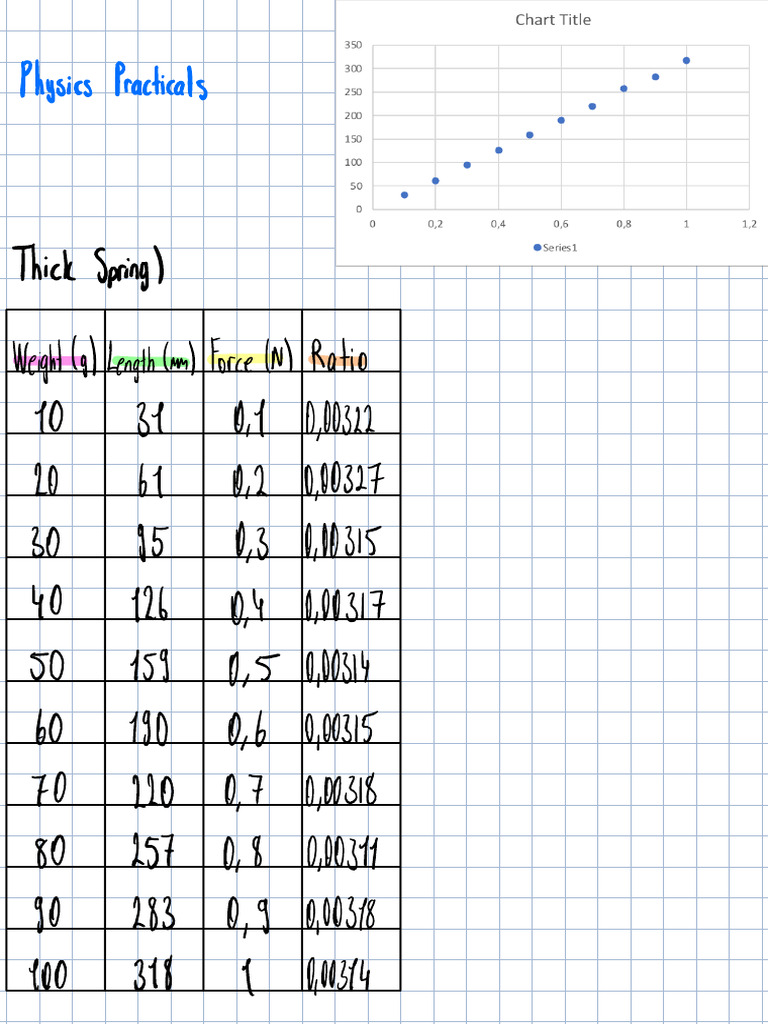 Physics Practicals
Chart Title
350
300
250
200
150
100
50
0
0 0,2 0,4 0,6 0,8 1 1,2
Series1
Thick Spring)
Weight (g) Length (mm) Force (N) Ratio
10 31 0,1 0,00322
20 61 0,2 0,00327
30 95 0,3 0,00315
40 126 0,4 0,00317
50 159 0,5 0,00314
60 190 0,6 0,00315
70 220 0,7 0,00318
80 257 0,8 0,00311
90 283 0,9 0,00318
100 318 1 0,00314